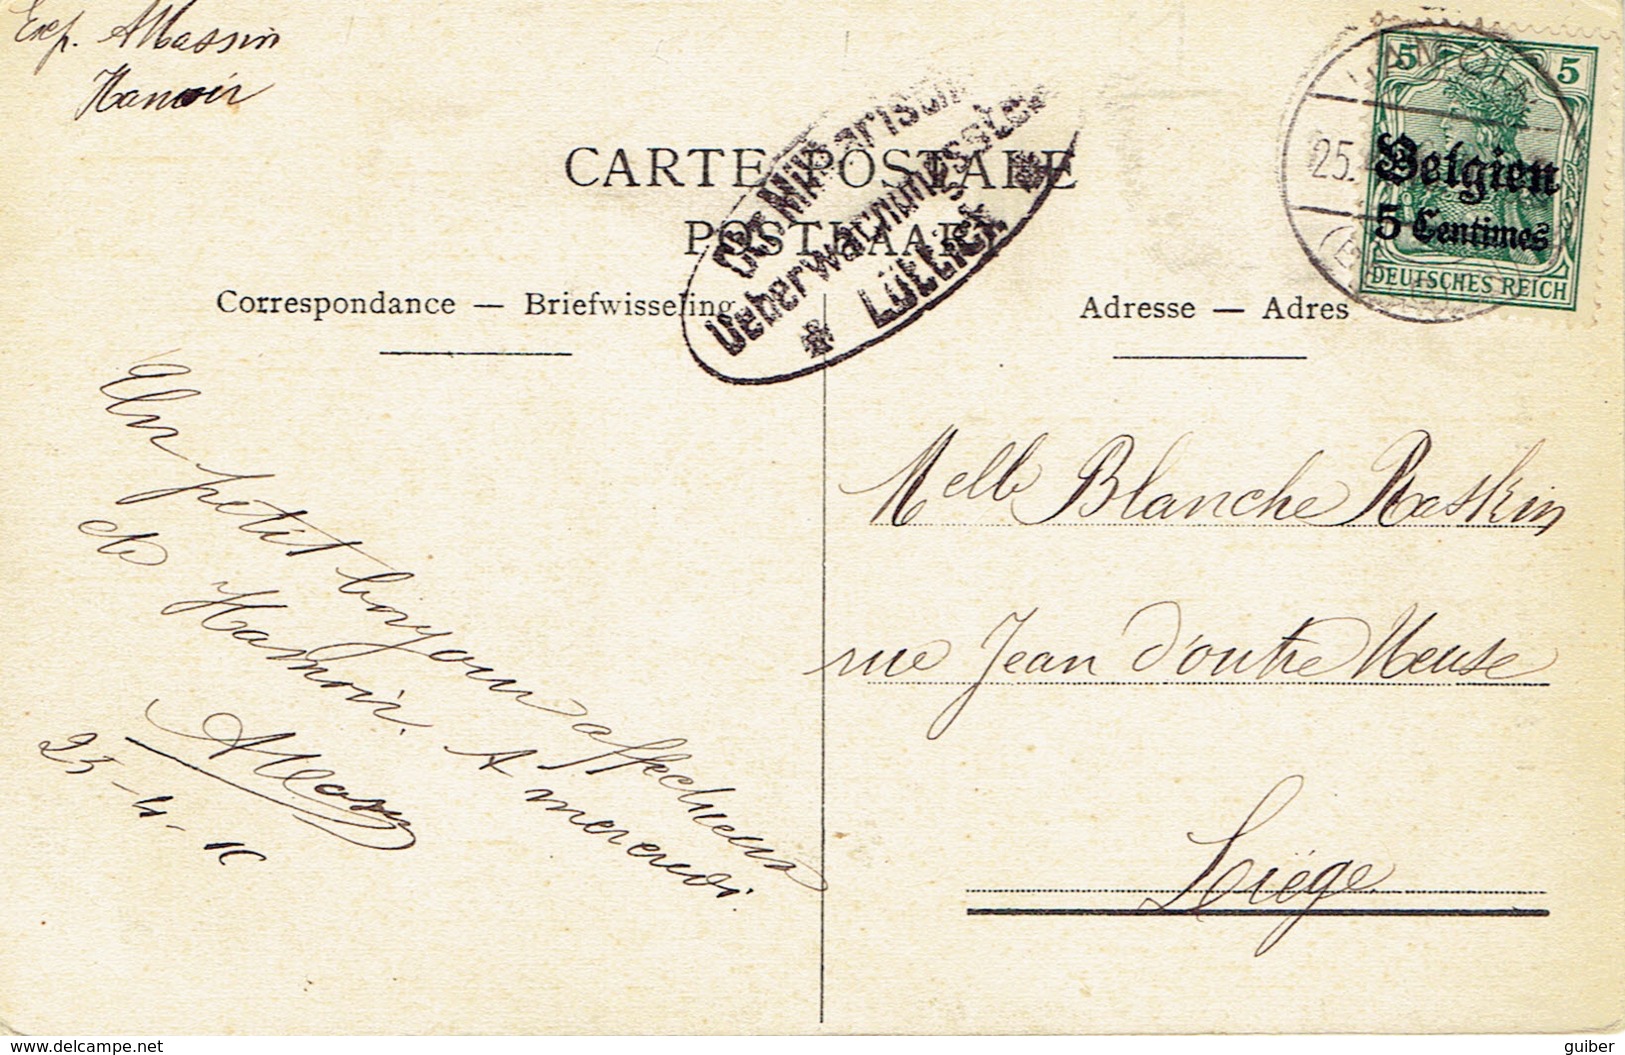 Exp. A Massin
Hamoir
CARTE POSTALE
POSTKAART
Correspondance — Briefwisseling
Adresse — Adres
Der Militärische
Ueberwachungsstelle
* Lüttich *
HAMOIR
25.
5 5
Belgien
5 Centimes
DEUTSCHES REICH
Un petit bonjour affectueux
de Hamoir. A mercredi.
25-4-16
Melle Blanche Raskin
rue Jean d'outre Meuse
Liége
www.delcampe.net
guiber